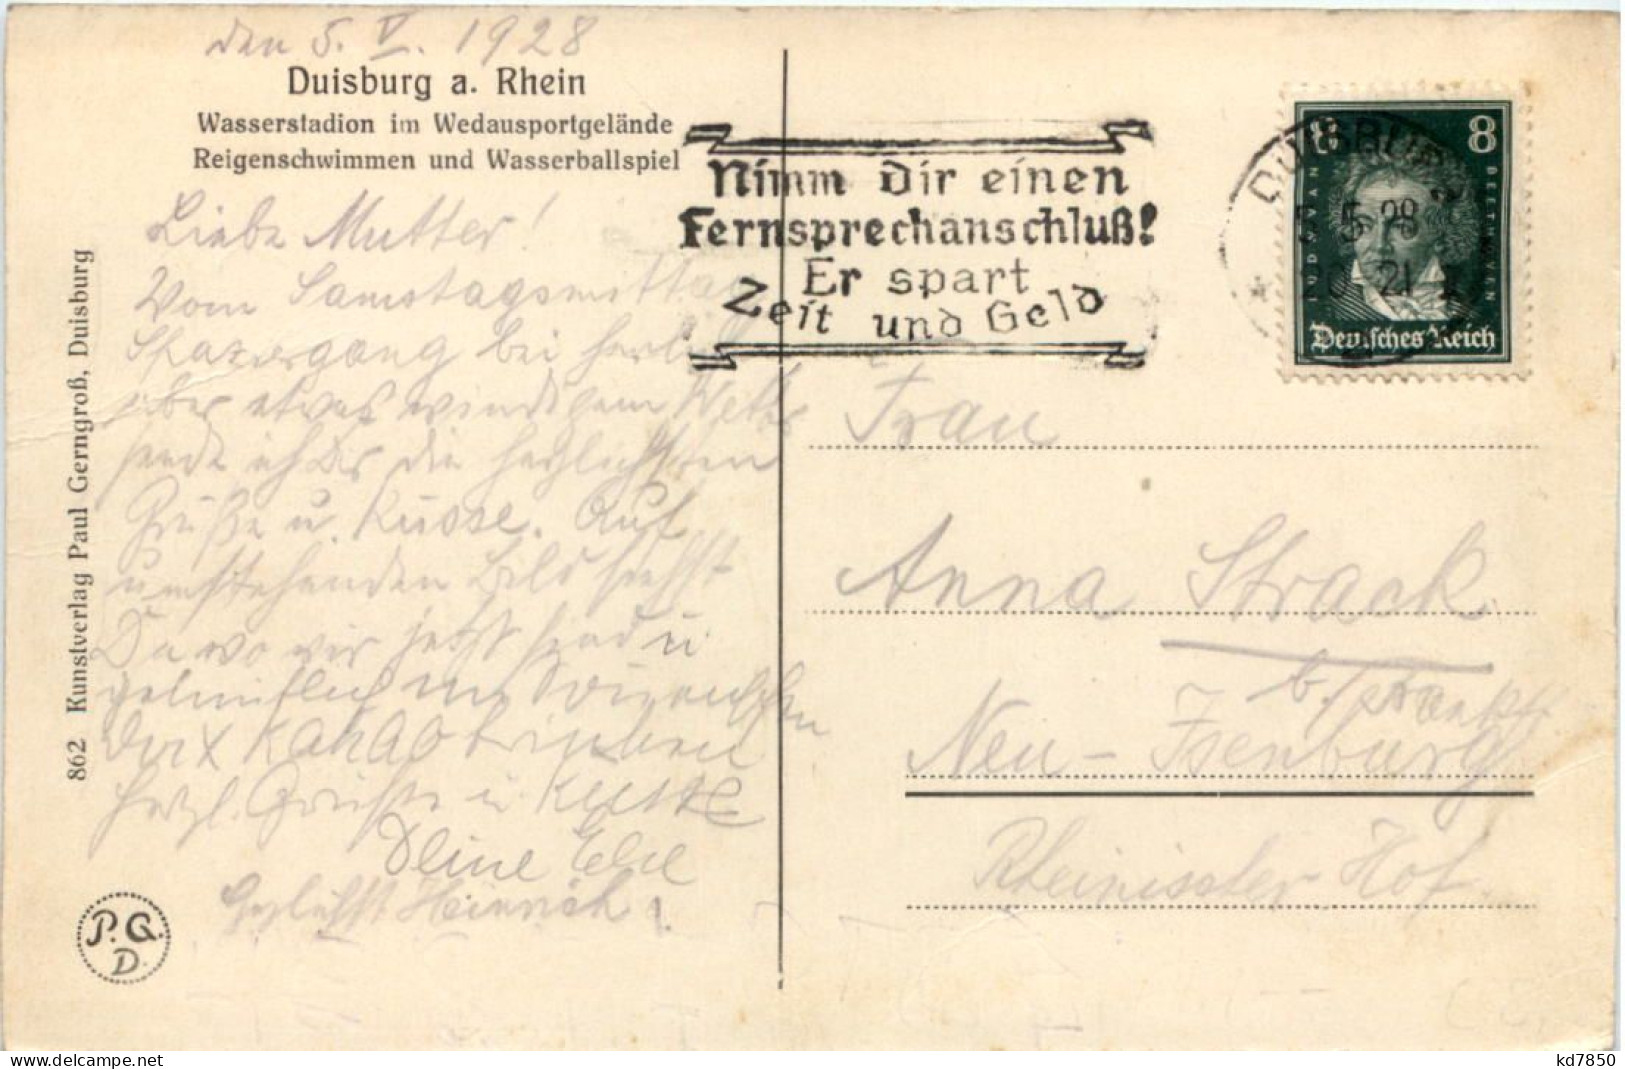 den 5. V. 1928
Duisburg a. Rhein
Wasserstadion im Wedausportgelände
Reigenschwimmen und Wasserballspiel
Liebe Mutter!
Vom Samstagsmittag
Spaziergang bei herrl.
aber etwas windigem Wetter
sende ich Dir die herzlichsten
Grüße u. Küsse. Auf
umstehenden Bild siehst
Du wo wir jetzt sind u
gelmütlich
Kakao trinken
herzl. Grüße u Küsse
Deine Else
Herzlichst Heinrich!
862 Kunstverlag Paul Gerngroß, Duisburg
P.G.
D.
Nimm dir einen
Fernsprechanschluß!
Er spart
Zeit und Geld
DUISBURG
5. 5. 28
20-21
8 8
LUDWIG VAN BEETHOVEN
Deutsches Reich
Frau
Anna Strack
b./Frankf.
Neu-Isenburg
Rheinischer Hof.
delcampe.net
kd7850